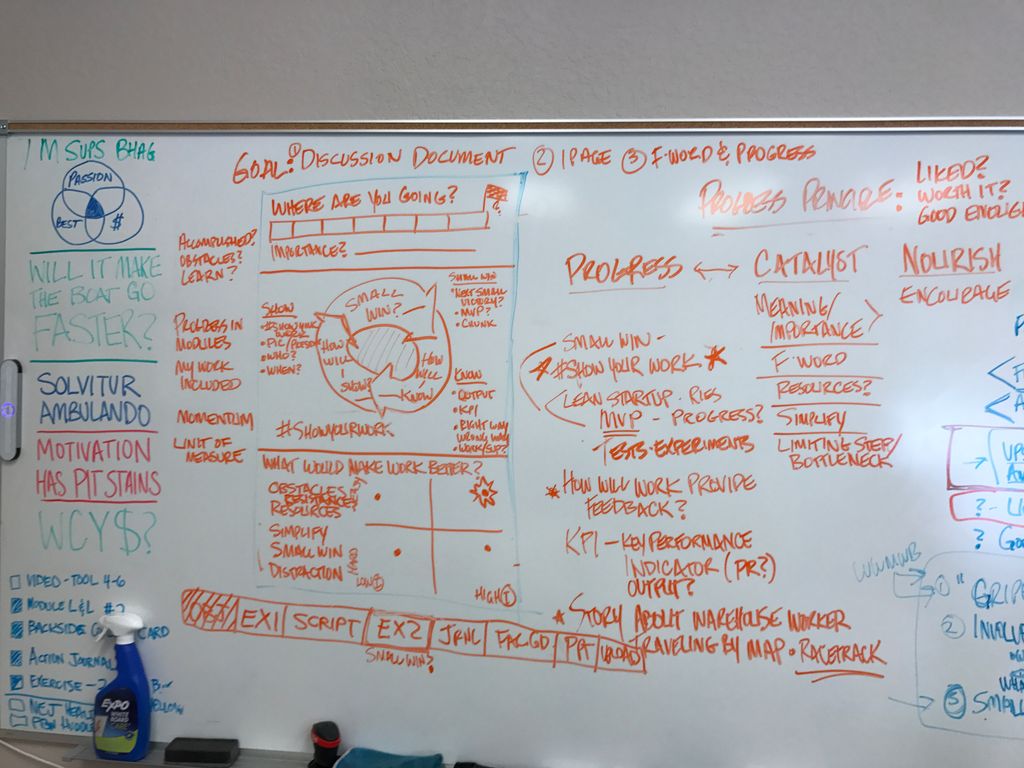 1 M SUPS BHAG
PASSION
BEST
$
WILL IT MAKE
THE BOAT GO
FASTER?
SOLVITUR
AMBULANDO
MOTIVATION
HAS PIT STAINS
WCY$?
VIDEO - TOOL 4-6
MODULE L&L #2
BACKSIDE CARD
ACTION JOURNAL
EXERCISE -
EXPO
WHITE BOARD
CARE
GOAL: ① DISCUSSION DOCUMENT ② 1 PAGE ③ F-WORD & PROGRESS
ACCOMPLISHED?
OBSTACLES?
LEARN?
PROGRESS IN
MODULES
MY WORK
INCLUDED
MOMENTUM
UNIT OF
MEASURE
WHERE ARE YOU GOING?
IMPORTANCE?
SHOW
#SHOWYOUR
WORK
• PIC/PERSON
• WHO?
• WHEN?
SMALL
WIN?
HOW
WILL
I
SHOW?
HOW
WILL
I
KNOW?
SMALL WIN
• NEXT SMALL
VICTORY?
• MVP?
• CHUNK
KNOW
• OUTPUT
• KPI
• RIGHT WAY
WRONG WAY
#SHOWYOURWORK
WHAT WOULD MAKE WORK BETTER?
OBSTACLES?
RESISTANCE?
RESOURCES
SIMPLIFY
SMALL WIN
DISTRACTION
EASY
HARD
LOW Ⓘ
HIGH Ⓘ
OBJ
EX1
SCRIPT
EX2
JRNL
FAC.GD
PPT
SMALL WIN?
PROGRESS PRINCIPLE:
LIKED?
WORTH IT?
GOOD ENOUGH
PROGRESS ↔ CATALYST
NOURISH
ENCOURAGE
SMALL WIN -
#SHOW YOUR WORK
LEAN STARTUP - RIES
MVP - PROGRESS?
TESTS - EXPERIMENTS
* HOW WILL WORK PROVIDE
FEEDBACK?
KPI - KEY PERFORMANCE
INDICATOR (PR?)
OUTPUT?
* STORY ABOUT WAREHOUSE WORKER
TRAVELING BY MAP • RACETRACK
MEANING/
IMPORTANCE
F WORD
RESOURCES?
SIMPLIFY
LIMITING STEP/
BOTTLENECK
WWMWB
②
③ SMALL